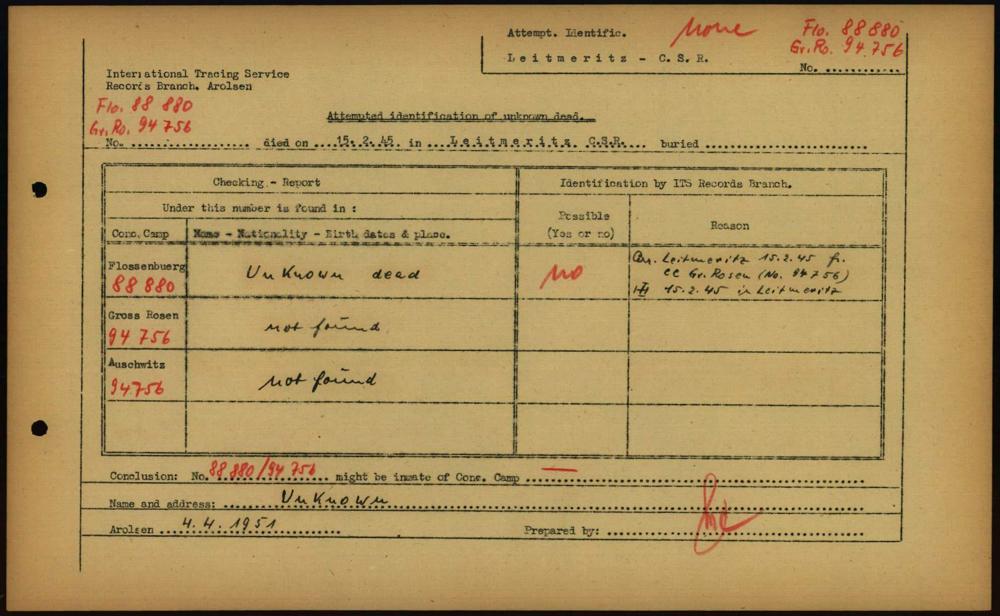 Attempt. Identific. none Flo. 88 880
Gr. Ro. 94 756
Leitmeritz - C. S. R.
No. ............
International Tracing Service
Records Branch, Arolsen
Flo. 88 880
Gr. Ro. 94 756
Attempted identification of unknown dead.
No. .................. died on ....15.2.45. in ...Leitmeritz C.S.R.... buried ...........................
Checking - Report
Identification by ITS Records Branch.
Under this number is found in :
Possible
(Yes or no)
Reason
Conc. Camp
Name - Nationality - Birth dates & place.
Flossenbuerg
88 880
Unknown dead
no
Leitmeritz 15.2.45 fr.
CC Gr. Rosen (No. 94756)
15.2.45 in Leitmeritz
Gross Rosen
94 756
not found
Auschwitz
94756
not found
Conclusion: No. 88 880/94 756 might be inmate of Conc. Camp —
Name and address: Unknown
Arolsen 4.4.1951
Prepared by: